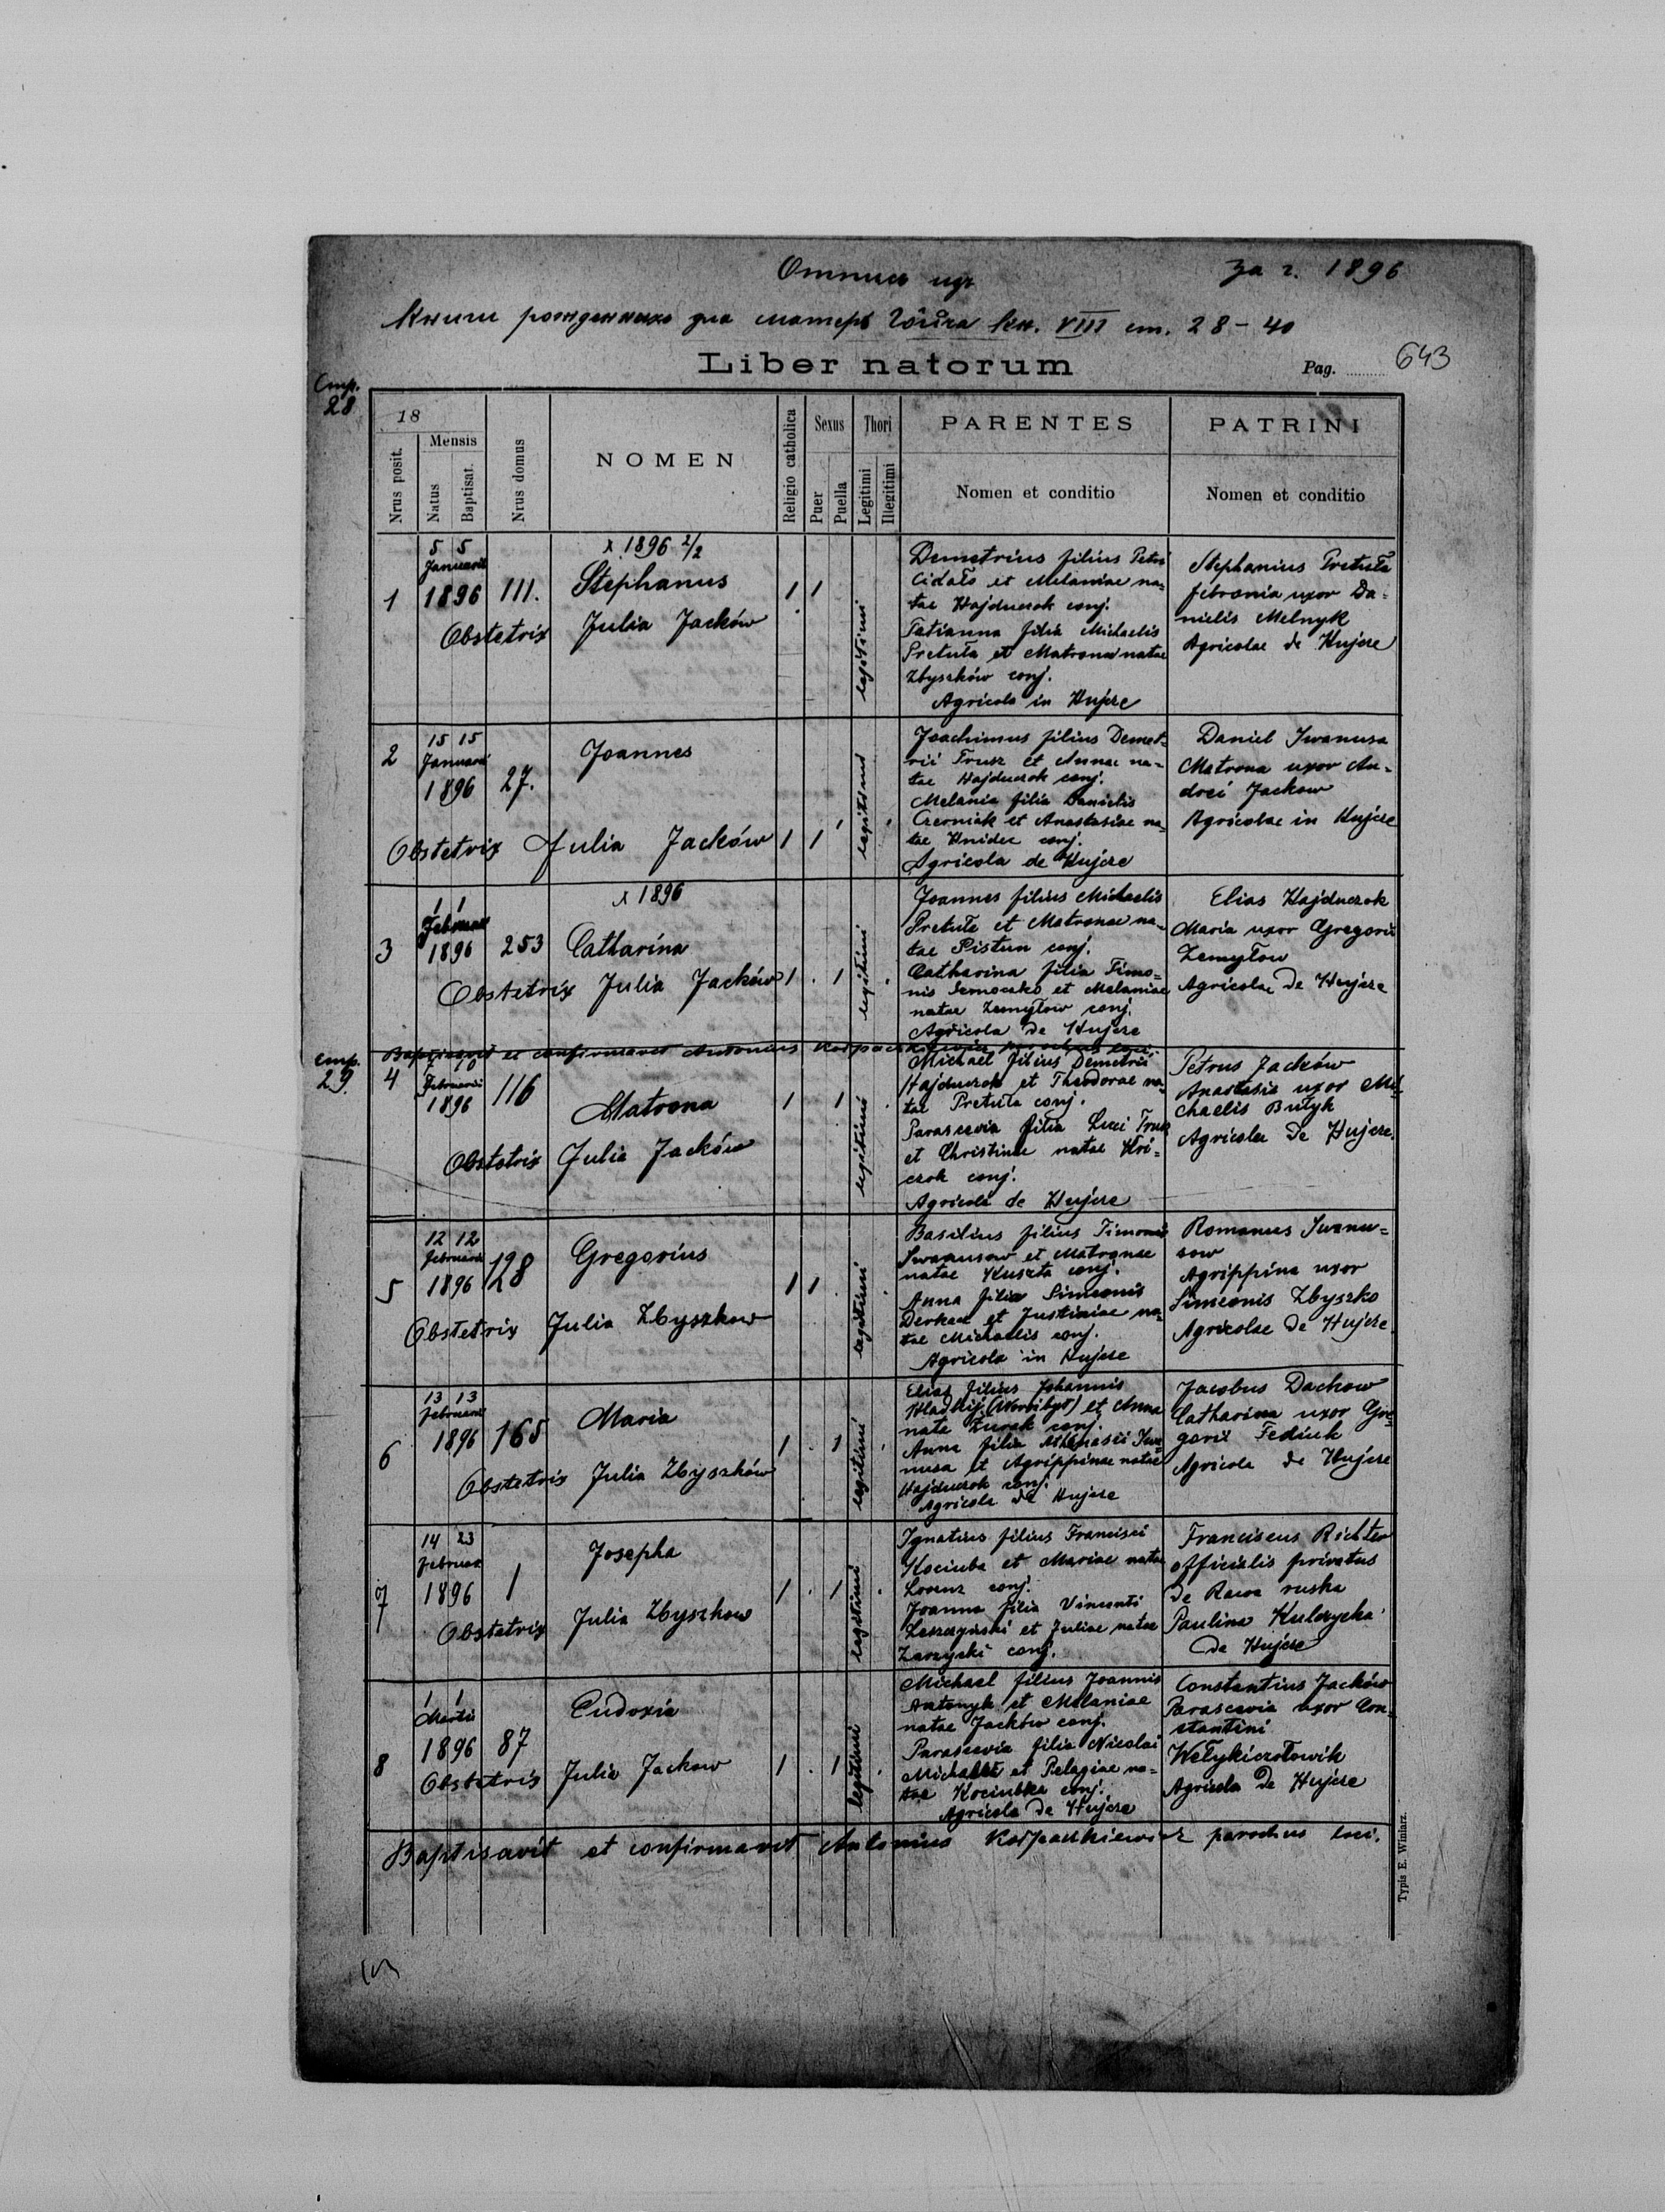 за г. 1896
Кн. VIII ст. 28-40
Liber natorum
Pag. 643
Стр.
28
18
Nrus posit.
Mensis
Natus
Baptisat.
Nrus domus
NOMEN
Religio catholica
Sexus
Puer
Puella
Thori
Legitimi
Illegitimi
PARENTES
Nomen et conditio
PATRINI
Nomen et conditio
1
5 5
Januarii
1896
111.
x 1896 2/2
Stephanus
Obstetrix Julia Jacków
1 1
legitimi
Demetrius filius Petri
Cidało et Melaniae na-
tae Hajduczok conj.
Tatianna filia Michaelis
Pretuła et Matronae natae
Zbyszków conj.
Agricola in Hujcze
Stephanius Pretuła
Febronia uxor Da-
nielis Melnyk
Agricolae de Hujcze
2
15 15
Januarii
1896
27.
Joannes
Obstetrix Julia Jacków
1 1
legitimi
Joachimus filius Demet-
rii Trusz et Annae na-
tae Hajduczok conj.
Melania filia Danielis
Czerniak et Anastasiae na-
tae Hnidec conj.
Agricola de Hujcze
Daniel Iwanusa
Matrona uxor An-
drei Jackow
Agricolae in Hujcze
3
1 1
Februarii
1896
253
x 1896
Catharina
Obstetrix Julia Jacków
1 . 1 .
legitimi
Joannes filius Michaelis
Pretuła et Matronae na-
tae Pistun conj.
Catharina filia Timo-
nis et Melaniae
natae Zemyłow conj.
Agricola de Hujcze
Elias Hajduczok
Maria uxor Gregorii
Zemyłow
Agricolae de Hujcze
Baptisavit et confirmavit Antonius parochus loci.
Стр.
29.
4
10
Februarii
1896
116
Matrona
Obstetrix Julia Jacków
1 1 .
legitimi
Michael filius Demetrii
Hajduczok et Theodorae na-
tae Pretuła conj.
Parascevia filia Luci Trusz
et Christinae natae Kri-
czok conj.
Agricola de Hujcze
Petrus Jacków
Anastasia uxor Mi-
chaelis Butyk
Agricolae de Hujcze.
5
12 12
Februarii
1896
128
Gregorius
Obstetrix Julia Zbyszkow
1 1
legitimi
Basilius filius Timonis
Iwanusow et Matronae
natae Kuszta conj.
Anna filia Simeonis
Derkacz et Justiniae na-
tae Michaelis conj.
Agricola in Hujcze
Romanus Iwanu-
sow
Agrippina uxor
Simeonis Zbyszko
Agricolae de Hujcze.
6
13 13
Februarii
1896
165
Maria
Obstetrix Julia Zbyszków
1 . 1 .
legitimi
Elias filius Johannis
Hladkij et Anna
nata Żurak conj.
Anna filia Athanasii Iwa-
nusa et Agrippinae natae
Hajduczok conj.
Agricola de Hujcze
Jacobus Dackow
Catharina uxor Gre-
gorii Fediuk
Agricola de Hujcze
7
14 23
Februar
1896
1
Josepha
Obstetrix Julia Zbyszkow
1 . 1 .
legitimi
Ignatius filius Francisci
Kociuba et Mariae natae
Lorenz conj.
Joanna filia Vincenti
Leszczyński et Juliae natae
Zarzyski conj.
Franciscus Richter
officialis privatus
de Rawa ruska
Paulina Kulczycka
de Hujcze
8
1 1
Martii
1896
87
Eudoxia
Obstetrix Julia Jackow
1 . 1 .
legitimi
Michael filius Joannis
Antonyk et Melaniae
natae Jacków conj.
Parascevia filia Nicolai
et Pelagiae na-
tae Kociubka conj.
Agricola de Hujcze
Constantius Jacków
Parascevia uxor Con-
stantini
Wełykiczołowik
Agricola de Hujcze
Baptisavit et confirmavit Antonius Kospaskiewicz parochus loci.
Typis E. Winiarz.